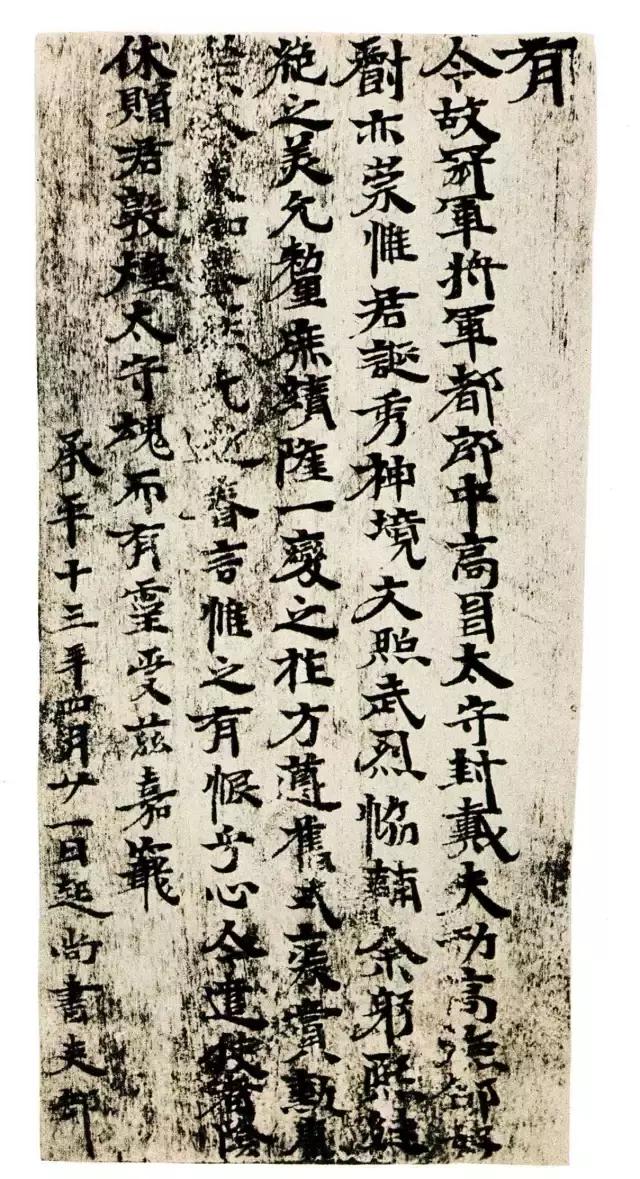 有
令故冠軍將軍都郎中高昌太守封戴夫功高
爵亦崇惟君誕秀神境文照武烈恊輔余躬熙繼
絕之美允釐庶績隆一變之祚方遵舊式褒賞勳庸
眷言惟之有恨乎心今遣使者陰
休贈君敦煌太守魂而有靈受茲嘉寵
承平十三年四月廿一日起尚書吏部